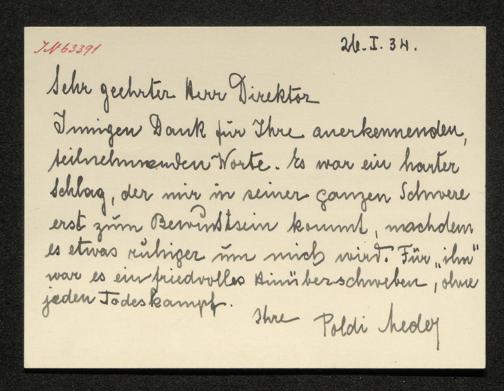 IN 63391
26.I.34.
Sehr geehrter Herr Direktor
Innigen Dank für Ihre anerkennenden,
teilnehmenden Worte. Es war ein harter
Schlag, der mir in seiner ganzen Schwere
erst zum Bewußtsein kommt, nachdem
es etwas ruhiger um mich wird. Für „ihn"
war es ein friedvolles Hinüberschweben, ohne
jeden Todeskampf.
Ihre Poldi